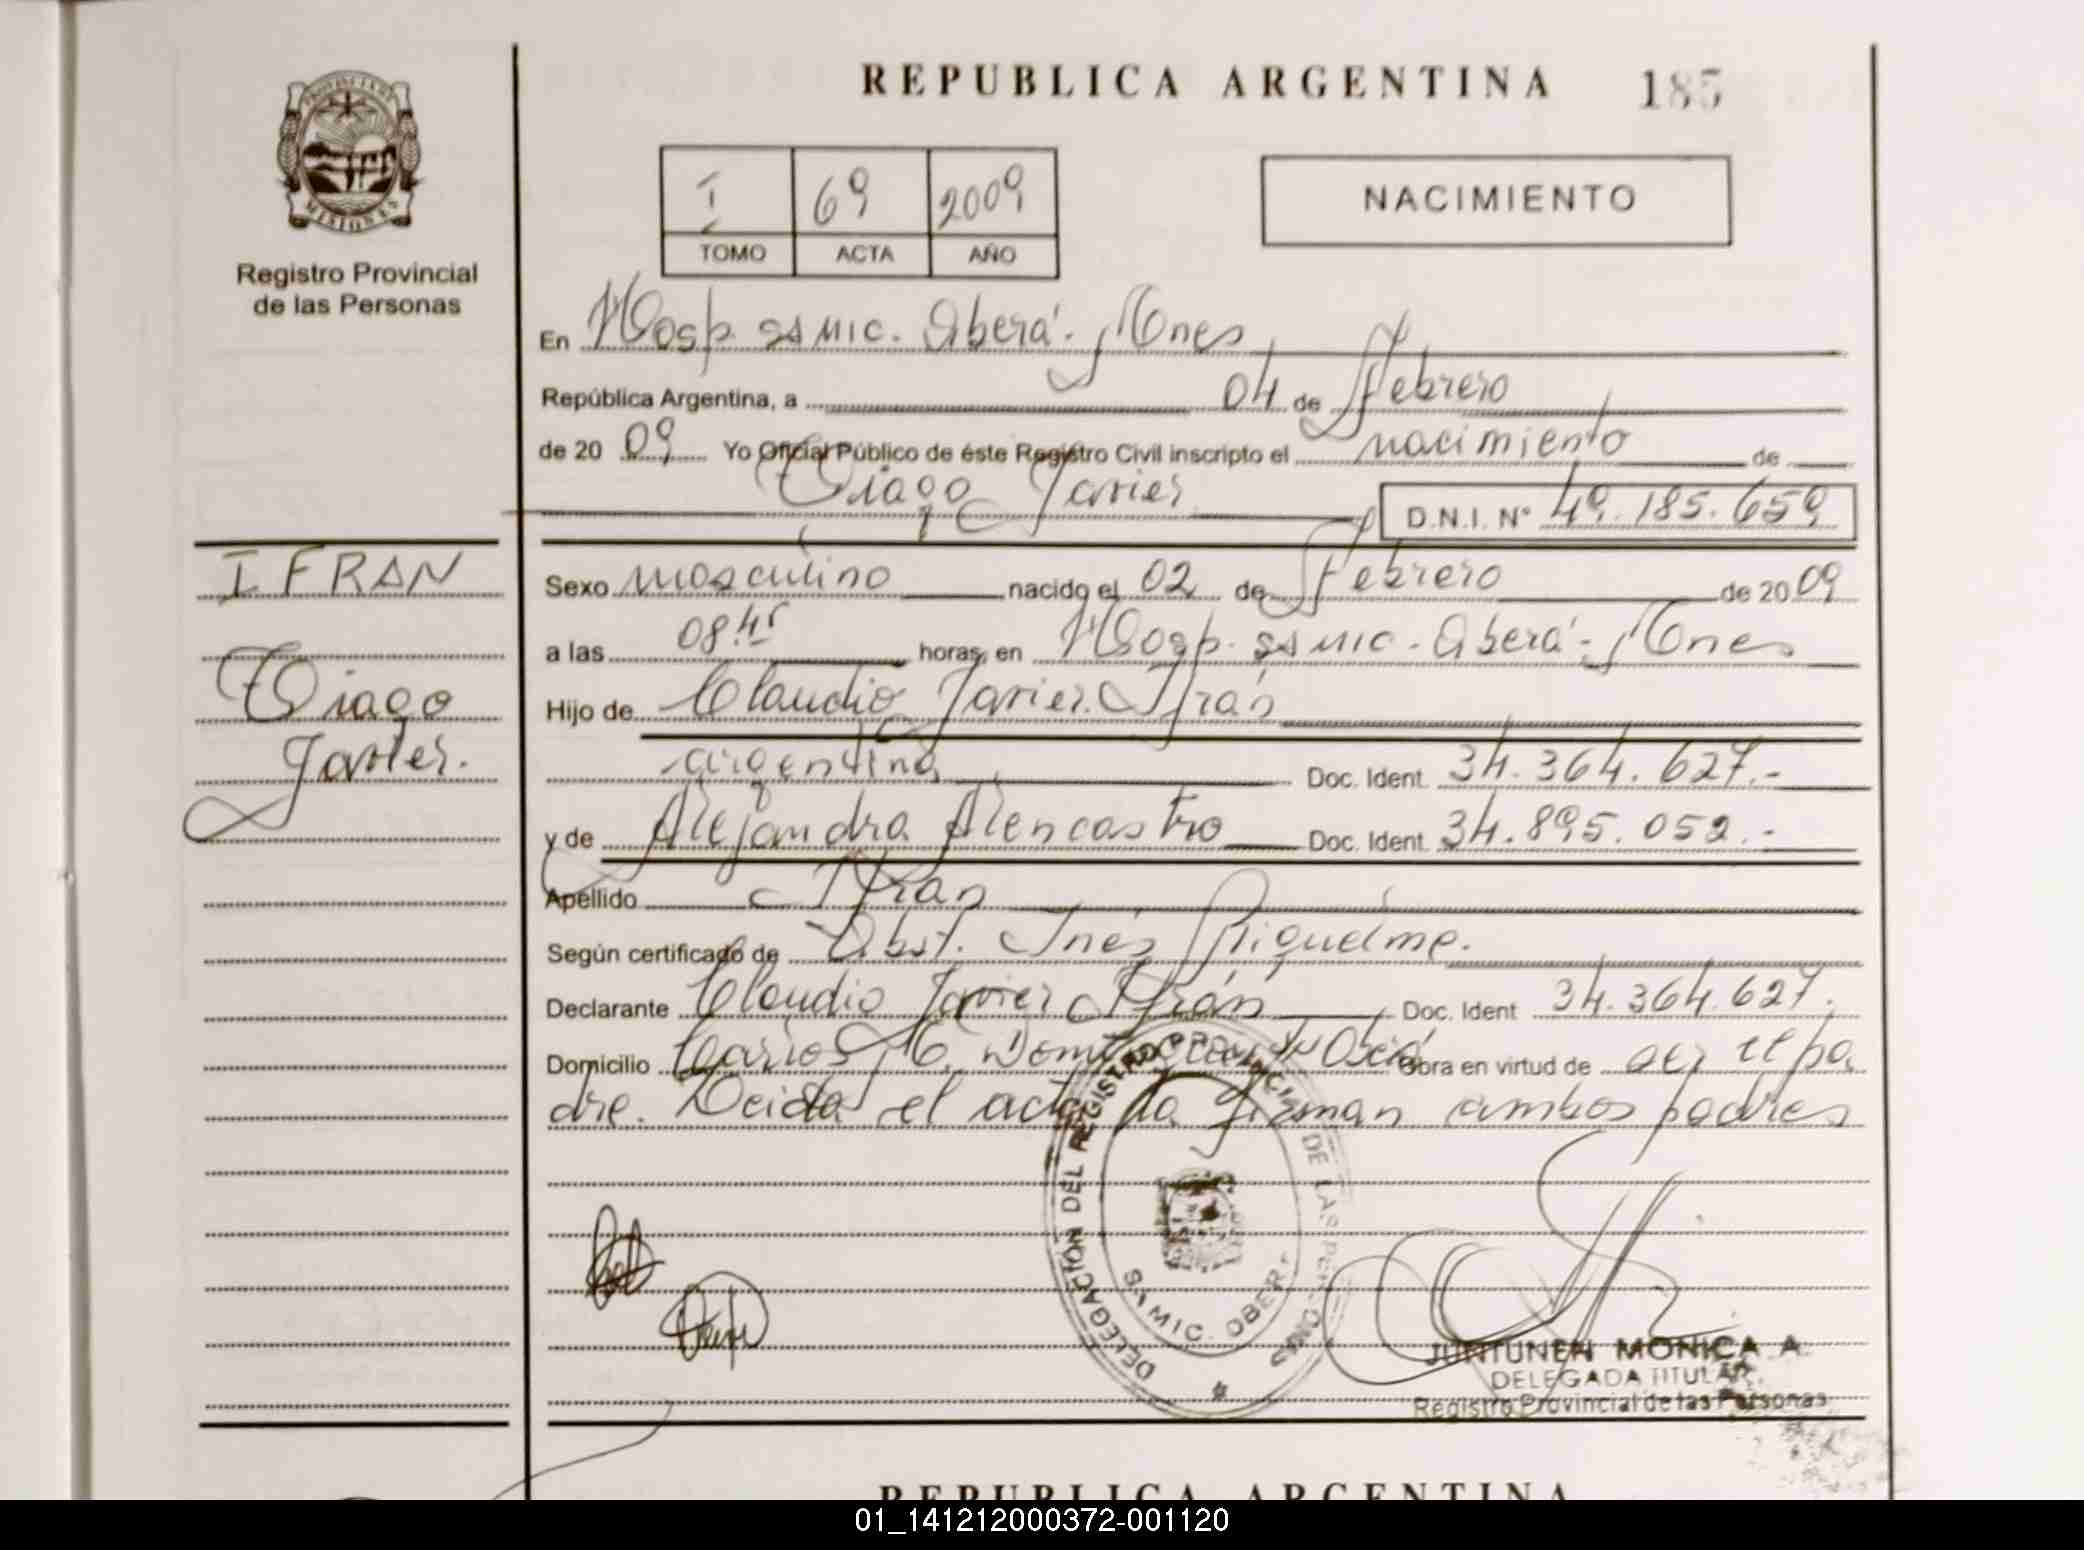 REPUBLICA ARGENTINA 185
PROVINCIA DE
MISIONES
Registro Provincial
de las Personas
I 69 2009
TOMO ACTA AÑO
NACIMIENTO
En Hosp. SAMIC. Oberá. Mnes
República Argentina, a 04 de Febrero
de 2009 Yo Oficial Público de éste Registro Civil inscripto el nacimiento de
Tiago Javier D.N.I. N° 49.185.659
IFRAN
Tiago
Javier.
Sexo masculino nacido el 02 de Febrero de 2009
a las 08:45 horas, en Hosp. SAMIC. Oberá. Mnes
Hijo de Claudio Javier Ifrán
argentina Doc. Ident. 34.364.627.-
y de Alejandra Alencastro Doc. Ident. 34.895.052.-
Apellido Ifran
Según certificado de Obst. Inés Riquelme.
Declarante Claudio Javier Ifrán Doc. Ident 34.364.627.
Domicilio Carlos M. Oberá Obra en virtud de ser el pa
dre. Leida el acta la firman ambos padres
DELEGACION DEL REGISTRO PROVINCIAL DE LAS PERSONAS
SAMIC. OBERA
JUNTUNEN MONICA A.
DELEGADA TITULAR
Registro Provincial de las Personas
REPUBLICA ARGENTINA
01_141212000372-001120